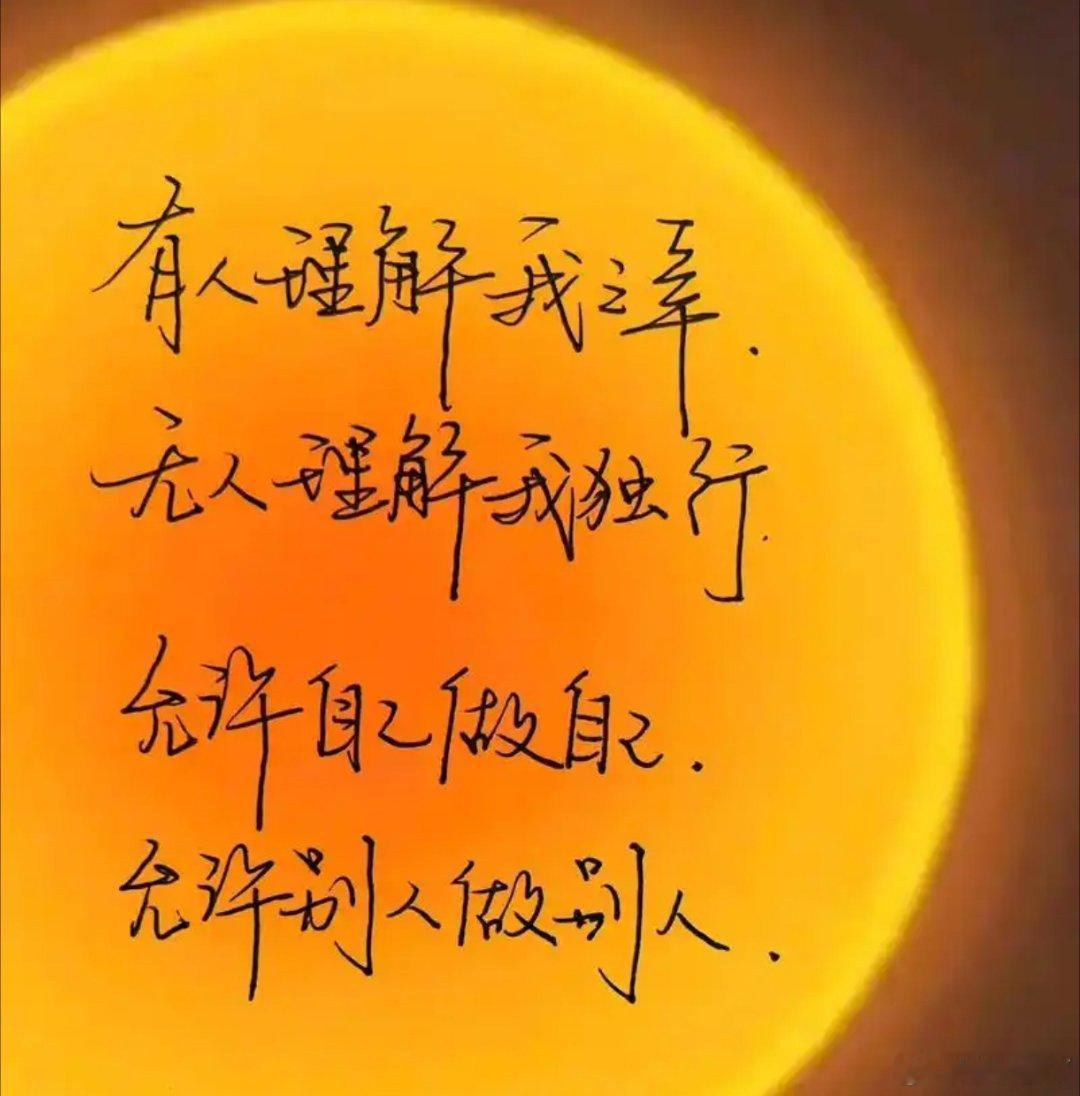 有人理解我之幸.
无人理解我独行.
允许自己做自己.
允许别人做别人.